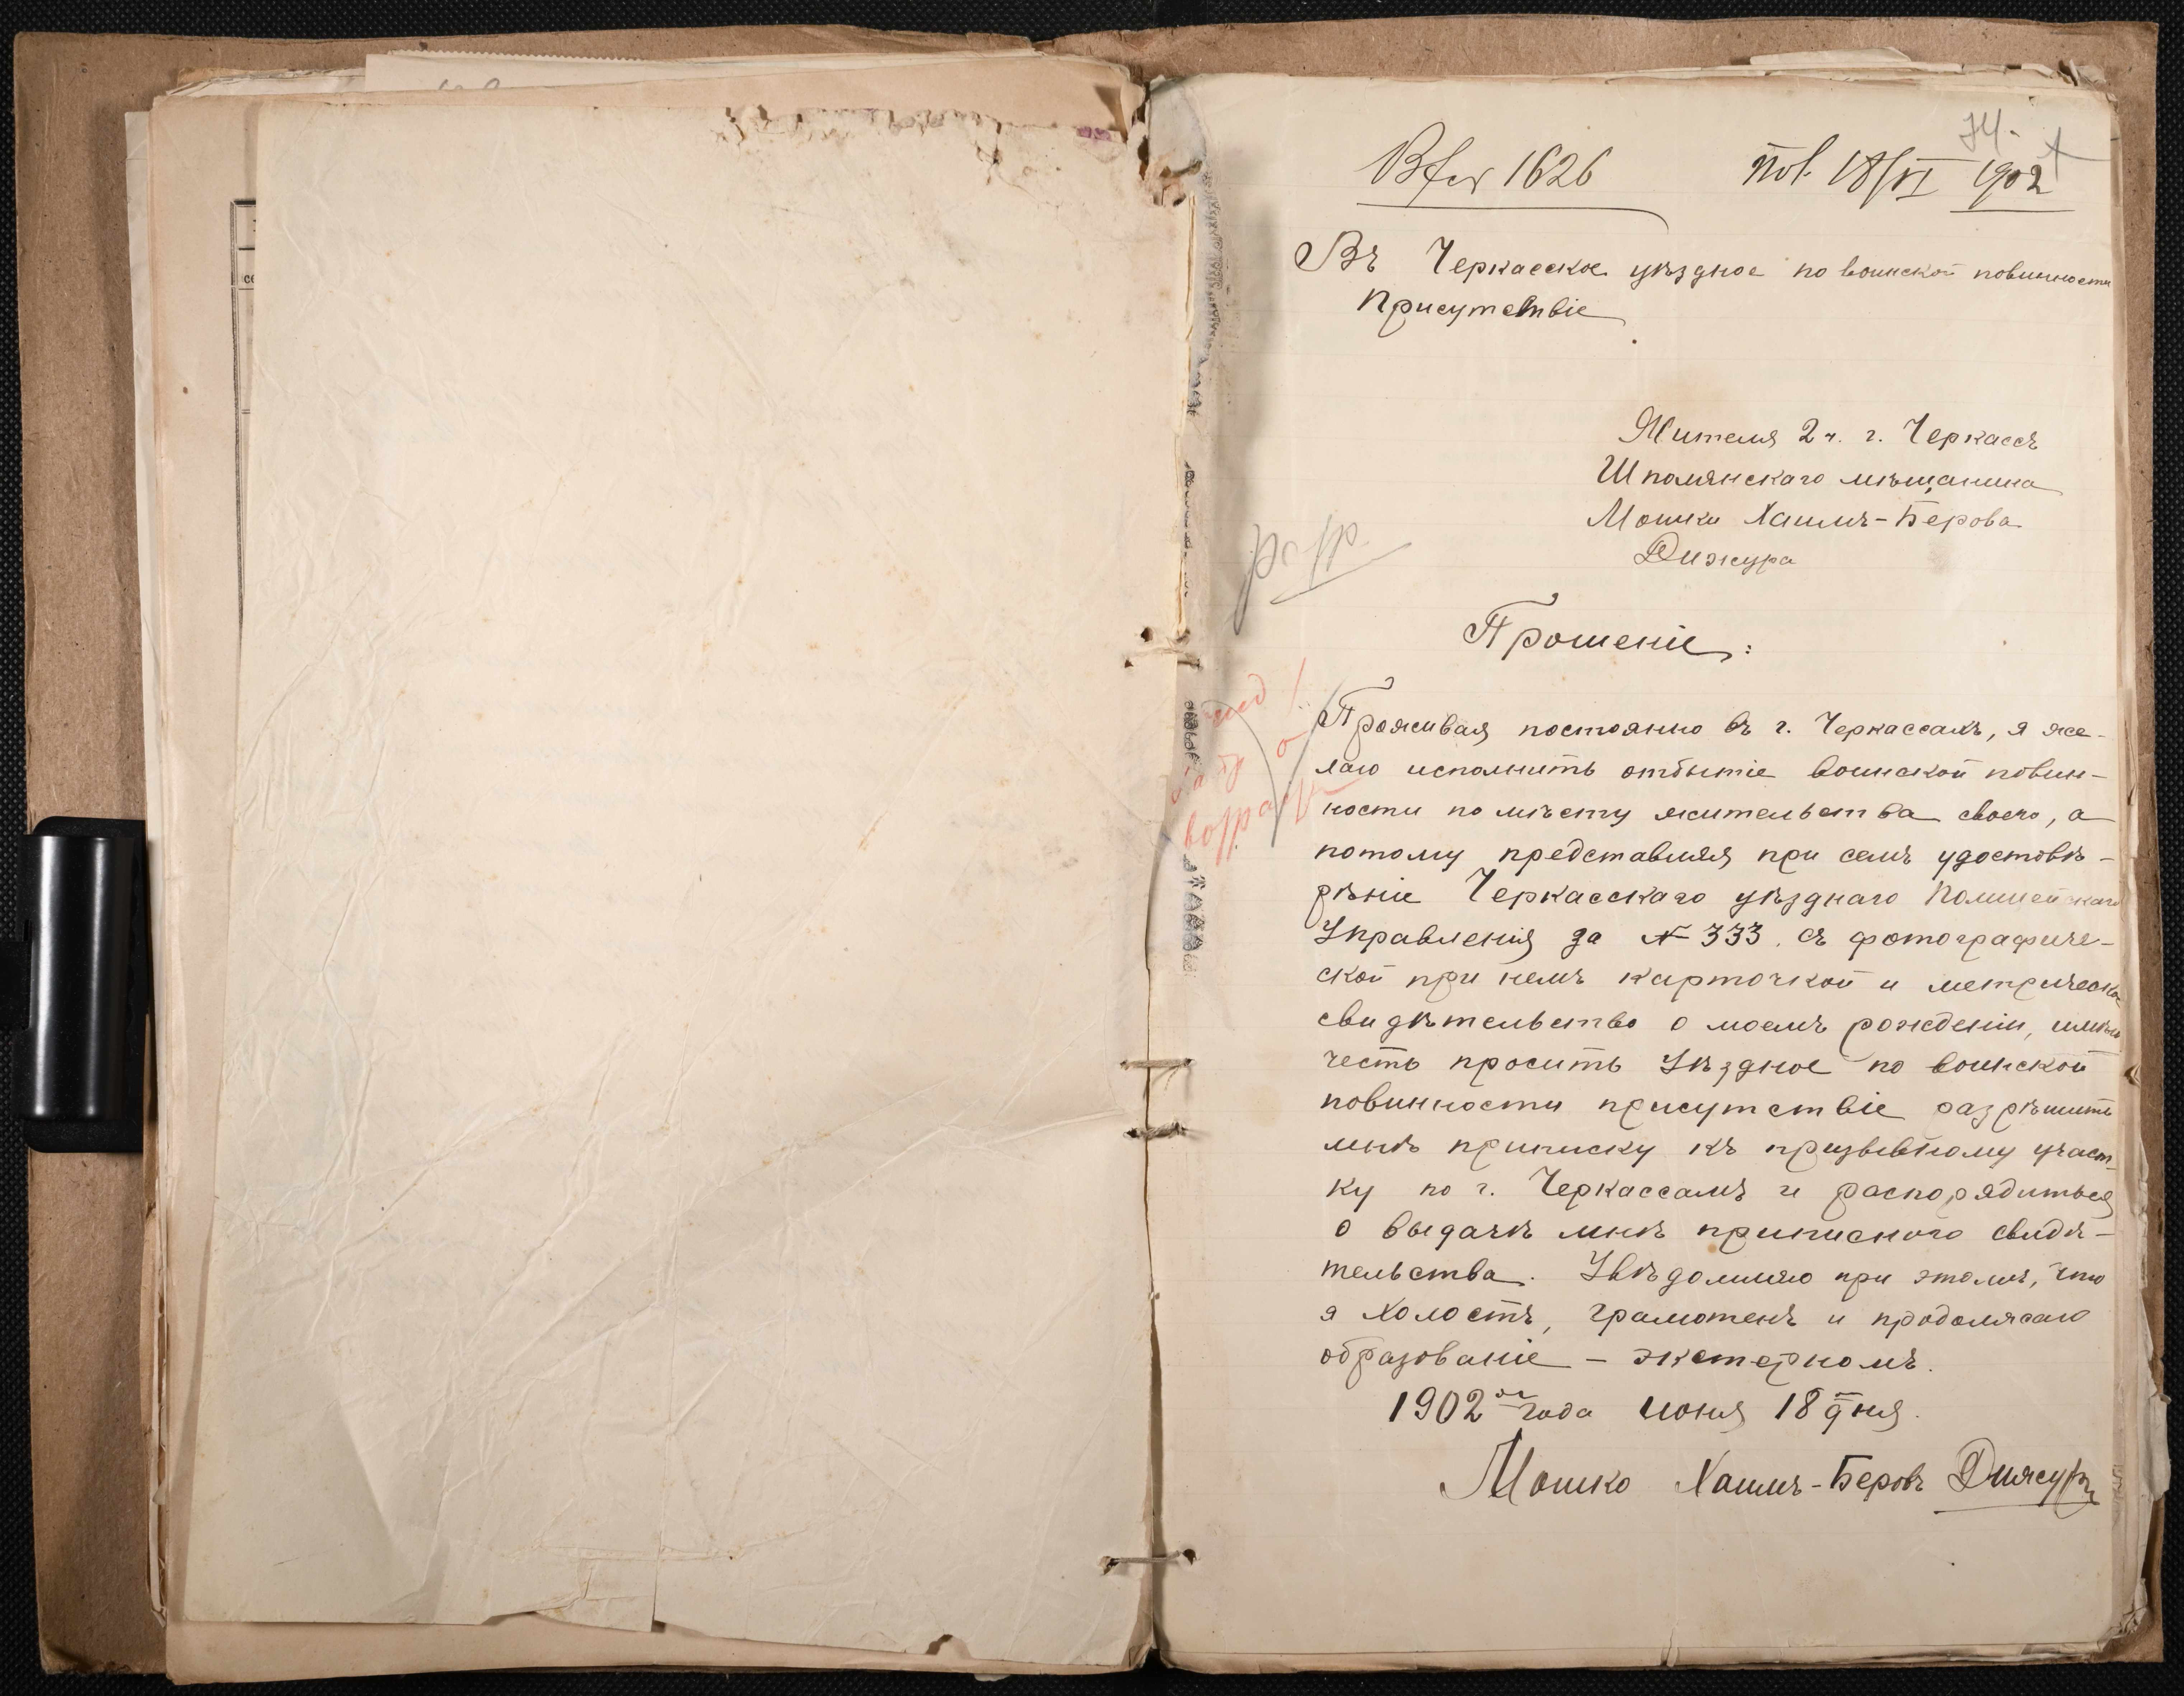 74.
Вх № 1626 Пол. 18/VI 1902
Въ Черкасское уѣздное по воинской повинности
Присутствіе
Жителя 2 ч. г. Черкассъ
Шполянскаго мѣщанина
Мошки Хаимъ-Берова
Дижура
Прошеніе:
Проживая постоянно въ г. Черкассахъ, я же-
лаю исполнить отбытіе воинской повин-
ности по мѣсту жительства своего, а
потому представляя при семъ удостовѣ-
рѣніе Черкасскаго уѣзднаго Полицейскаго
Управленія за № 333 съ фотографиче-
ской при немъ карточкой и метрическое
свидѣтельство о моемъ рожденіи, имѣю
честь просить Уѣздное по воинской
повинности присутствіе разрѣшить
мнѣ приписку къ призывному участ-
ку по г. Черкассамъ и распорядиться
о выдачѣ мнѣ приписного свидѣ-
тельства. Увѣдомляю при этомъ, что
я холостъ, грамотенъ и продолжаю
образованіе – экстерномъ.
1902 года июня 18 дня.
Мошко Хаимъ-Беровъ Дижуръ